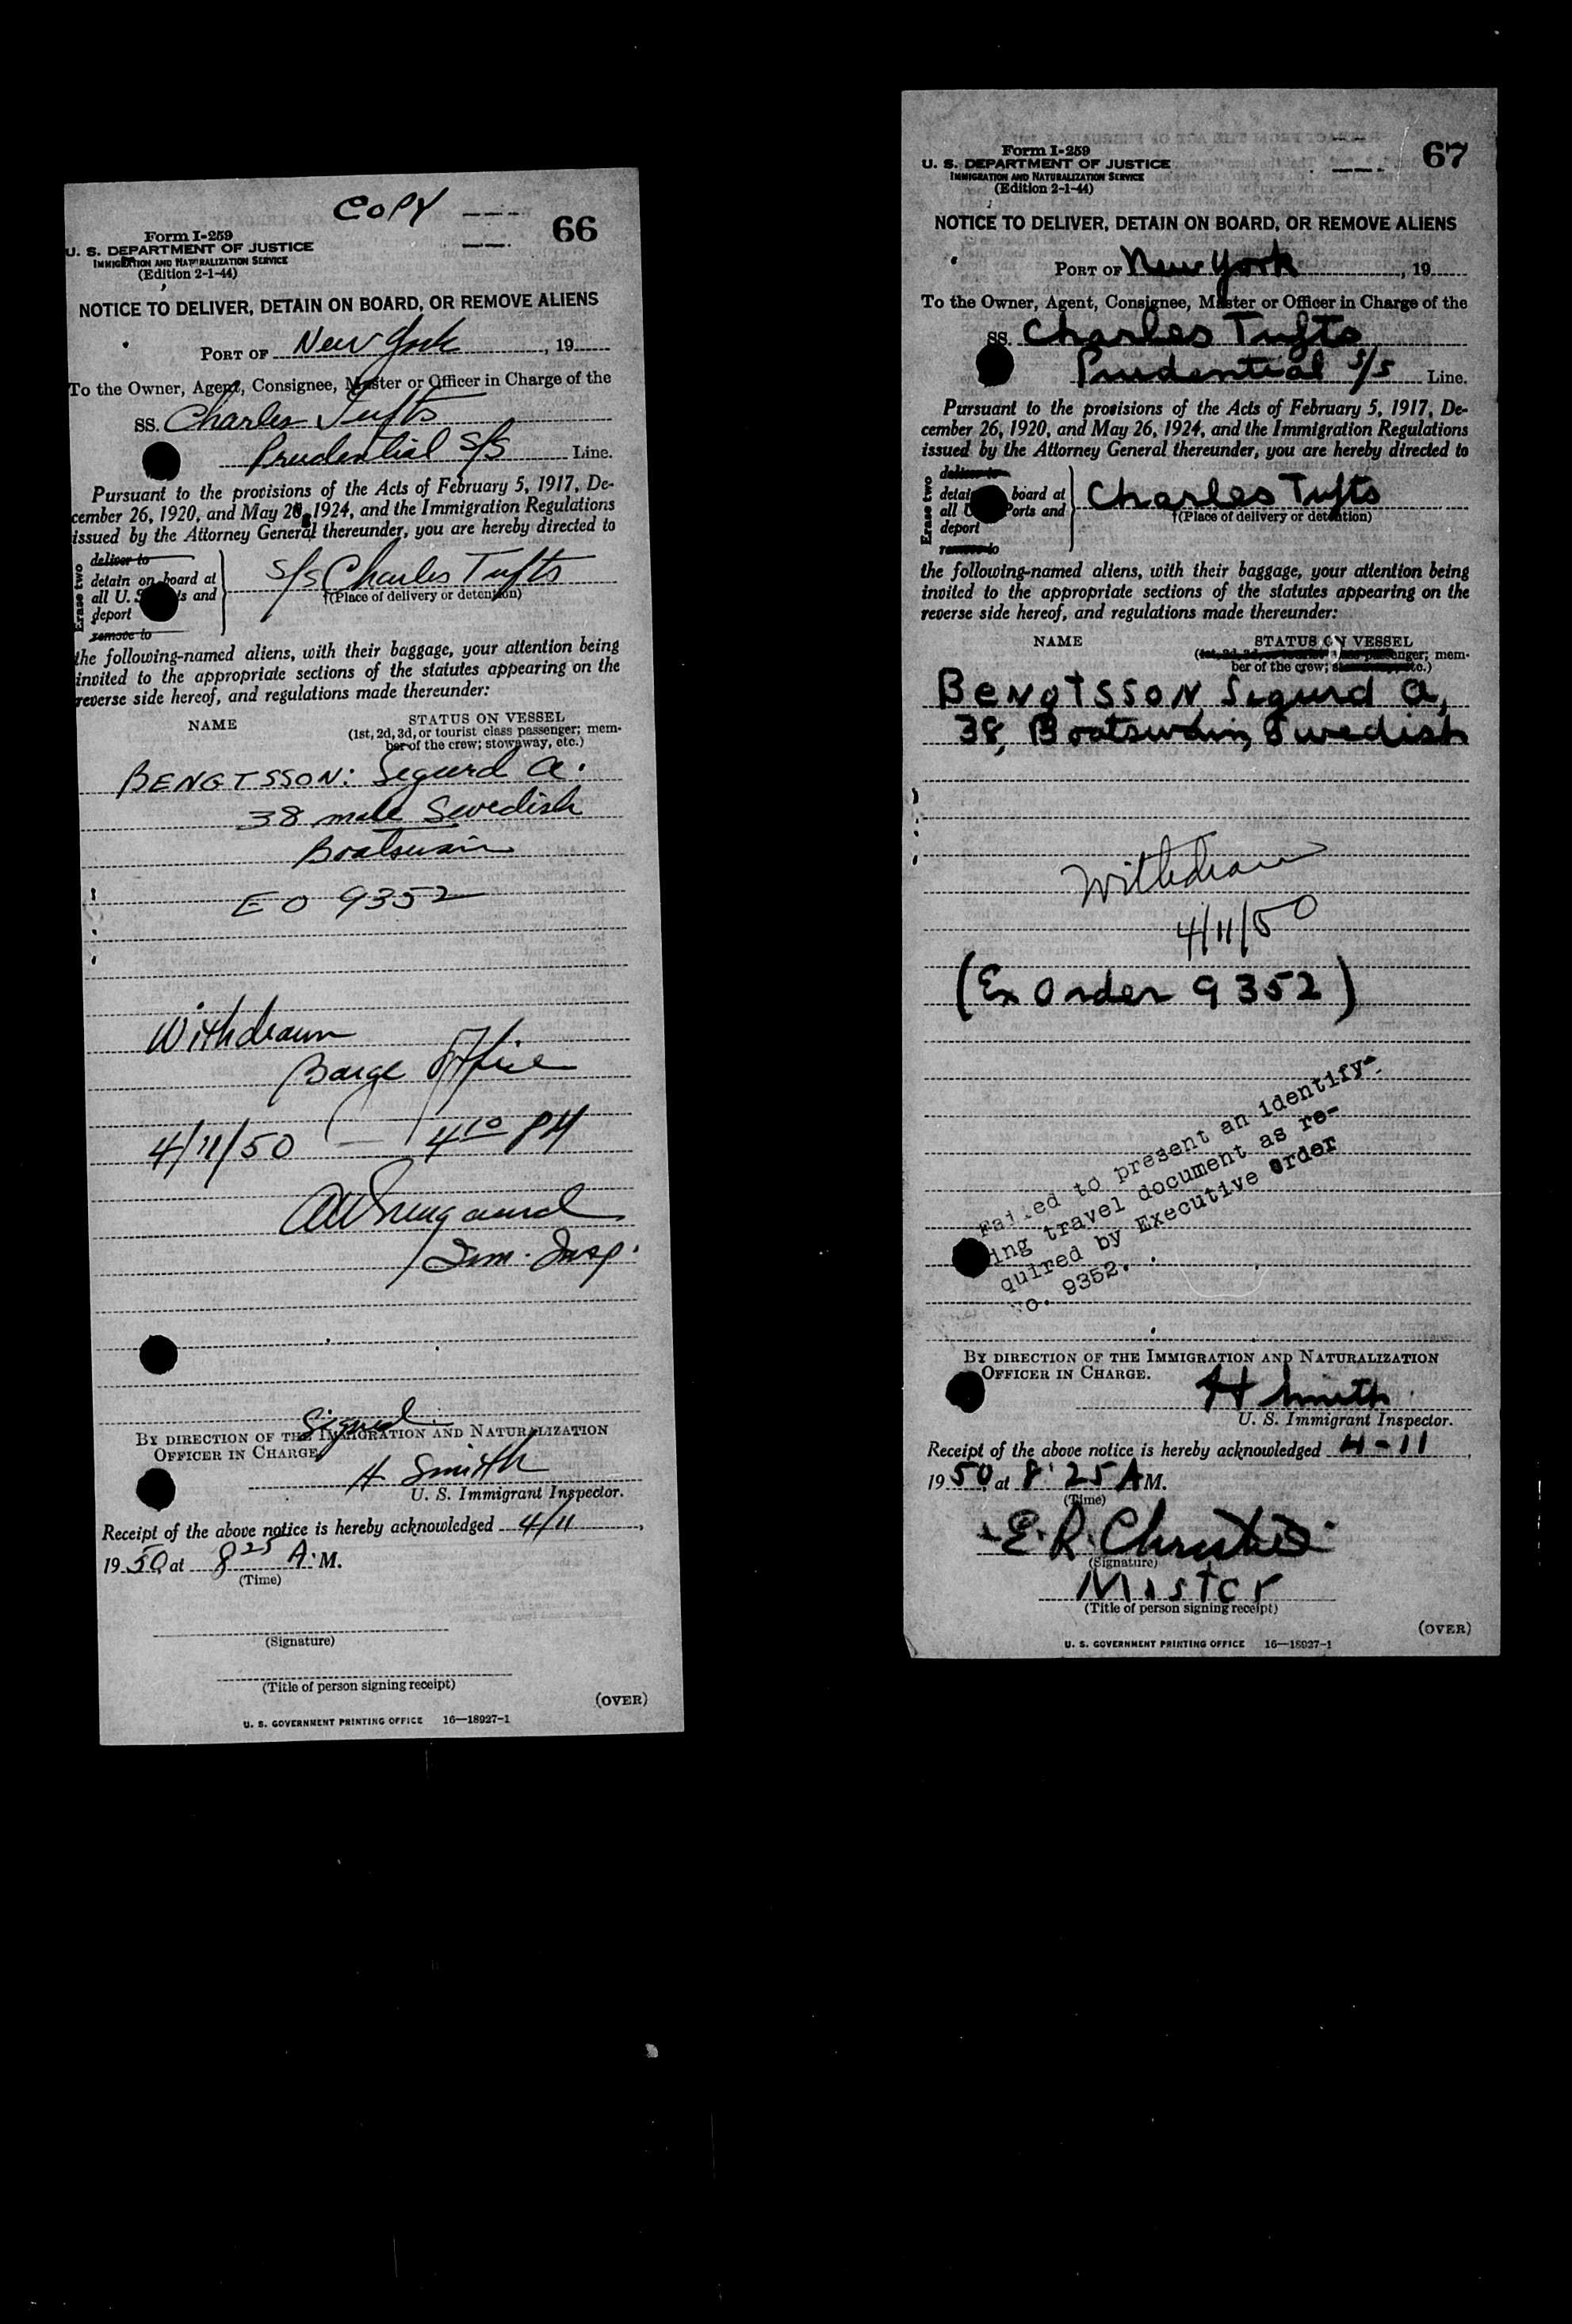 COPY
66
Form I-259
U. S. DEPARTMENT OF JUSTICE
IMMIGRATION AND NATURALIZATION SERVICE
(Edition 2-1-44)
NOTICE TO DELIVER, DETAIN ON BOARD, OR REMOVE ALIENS
PORT OF New York, 19
To the Owner, Agent, Consignee, Master or Officer in Charge of the
SS. Charles Tufts
Prudential S/S Line.
Pursuant to the provisions of the Acts of February 5, 1917, De-
cember 26, 1920, and May 26, 1924, and the Immigration Regulations
issued by the Attorney General thereunder, you are hereby directed to
Erase two
deliver to
detain on board at
all U. S. and
deport
remove to
S/S Charles Tufts
†(Place of delivery or detention)
the following-named aliens, with their baggage, your attention being
invited to the appropriate sections of the statutes appearing on the
reverse side hereof, and regulations made thereunder:
NAME STATUS ON VESSEL
(1st, 2d, 3d, or tourist class passenger; mem-
ber of the crew; stowaway, etc.)
BENGTSSON: Sigurd A.
38 male Swedish
Boatswain
EO 9352
Withdrawn
Barge Office
4/11/50 — 4 10 PM
Imm. Insp.
Signed
BY DIRECTION OF THE IMMIGRATION AND NATURALIZATION
OFFICER IN CHARGE
H Smith
U. S. Immigrant Inspector.
Receipt of the above notice is hereby acknowledged 4/11,
1950 at 8 25 A. M.
(Time)
(Signature)
(Title of person signing receipt)
(OVER)
U. S. GOVERNMENT PRINTING OFFICE 16—18927-1
67
Form I-259
U. S. DEPARTMENT OF JUSTICE
IMMIGRATION AND NATURALIZATION SERVICE
(Edition 2-1-44)
NOTICE TO DELIVER, DETAIN ON BOARD, OR REMOVE ALIENS
PORT OF New York, 19
To the Owner, Agent, Consignee, Master or Officer in Charge of the
SS. Charles Tufts
Prudential S/S Line.
Pursuant to the provisions of the Acts of February 5, 1917, De-
cember 26, 1920, and May 26, 1924, and the Immigration Regulations
issued by the Attorney General thereunder, you are hereby directed to
Erase two
deliver to
board at
all Ports and
deport
remove to
Charles Tufts
†(Place of delivery or detention)
the following-named aliens, with their baggage, your attention being
invited to the appropriate sections of the statutes appearing on the
reverse side hereof, and regulations made thereunder:
NAME STATUS ON VESSEL
(1st, 2d, 3d, or tourist class passenger; mem-
ber of the crew; stowaway, etc.)
BENGTSSON, Sigurd A,
38, Boatswain, Swedish
Withdrawn
4/11/50
(Ex Order 9352)
Failed to present an identify-
ing travel document as re-
quired by Executive Order
No. 9352.
BY DIRECTION OF THE IMMIGRATION AND NATURALIZATION
OFFICER IN CHARGE.
H Smith
U. S. Immigrant Inspector.
Receipt of the above notice is hereby acknowledged 4-11,
1950 at 8:25 A M.
(Time)
E. R. Christie
(Signature)
Master
(Title of person signing receipt)
(OVER)
U. S. GOVERNMENT PRINTING OFFICE 16—18927-1